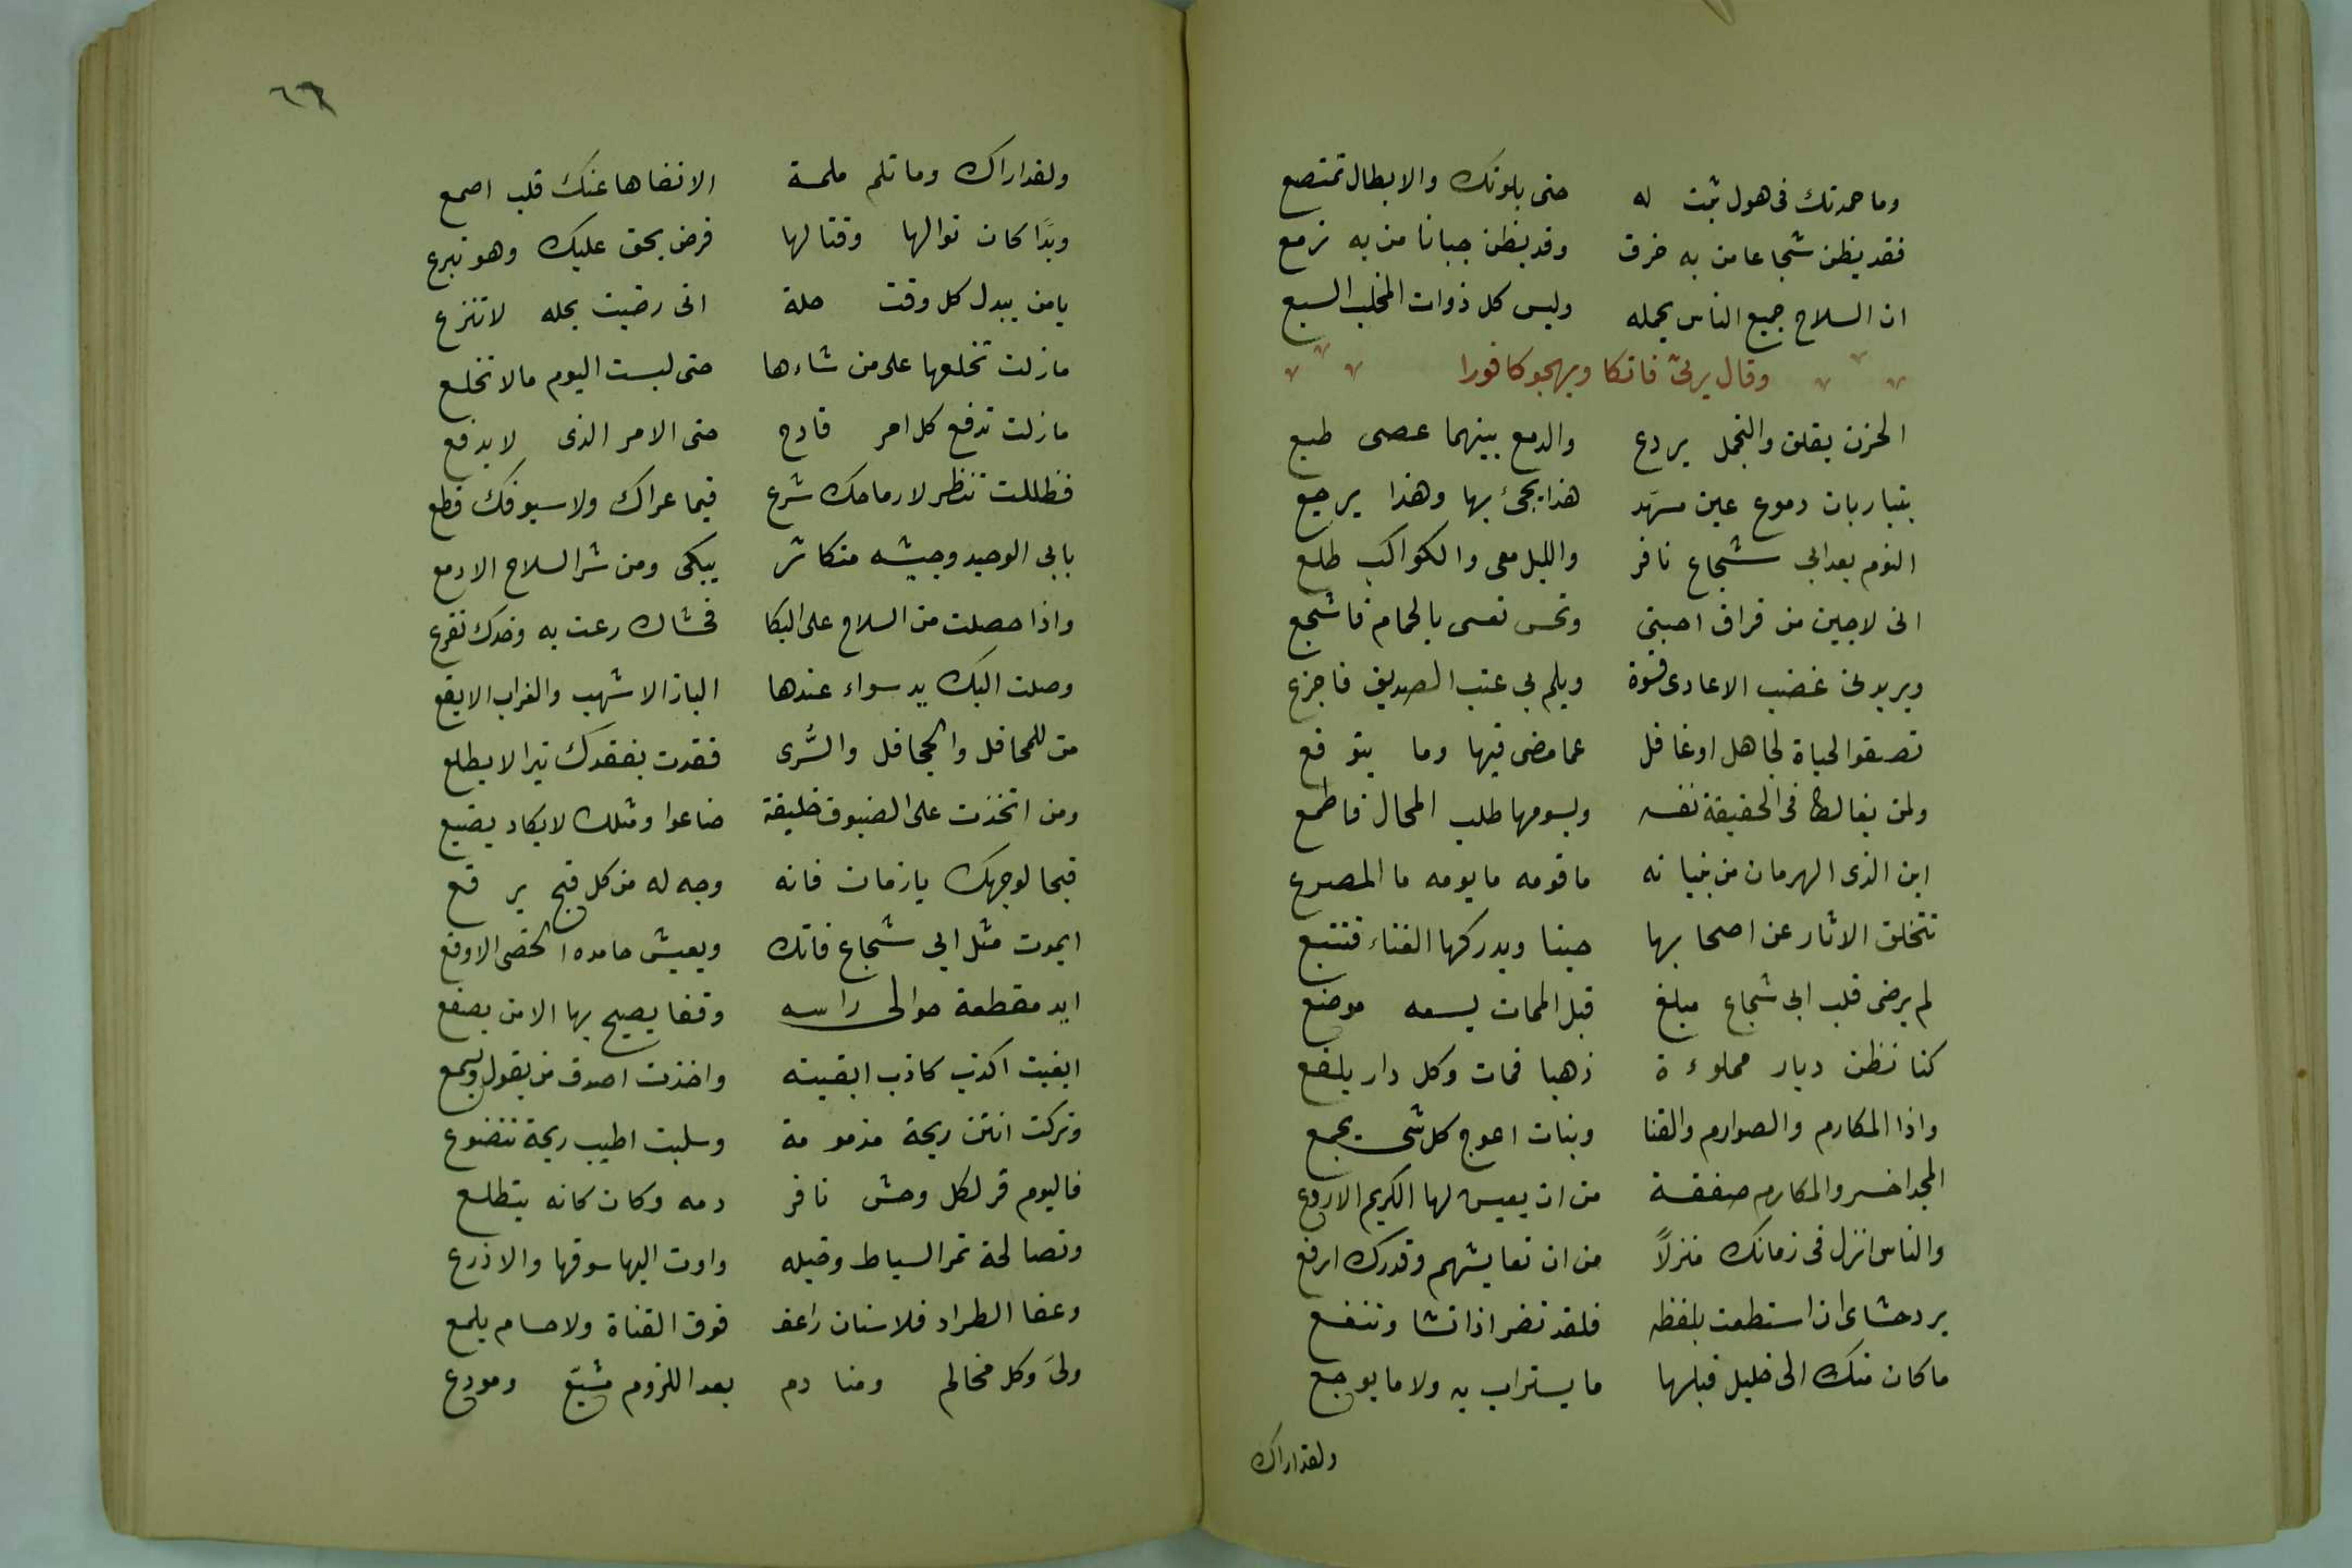 وما حمدتك فى هول ثبت له حتى بلوتك والابطال تمتصع
فقد يظن شجاعا من به خرق وقد يظن جبانا من به زمع
ان السلاح جميع الناس يحمله وليس كل ذوات المخلب السبع
وقال يرثى فاتكا ويهجو كافورا
الحزن يقلق والتجمل يردع والدمع بينهما عصى طيع
يتنازعان دموع عين مسهد هذا يجئ بها وهذا يرجع
النوم بعد ابى شجاع نافر والليل معى والكواكب طلع
انى لاجبن من فراق احبتى وتحس نفسى بالحمام فاشجع
ويزيدنى غضب الاعادى قسوة ويلم بى عتب الصديق فاجزع
تصفو الحياة لجاهل او غافل عما مضى فيها وما يتوقع
ولمن يغالط فى الحقيقة نفسه ويسومها طلب المحال فتطمع
اين الذى الهرمان من بنيانه ما قومه ما يومه ما المصرع
تتخلق الاثار عن اصحابها حينا ويدركها الفناء فتتبع
لم يرض قلب ابى شجاع مبلغ قبل الممات ولم يسعه موضع
كنا نظن ديار مملوءة ذهبا فمات وكل دار بلقع
واذا المكارم والصوارم والقنا وبنات اعوج كل شى يجمع
المجد اخسر والمكارم صفقة من ان يعيش لها الكريم الاروع
والناس انزل فى زمانك منزلاً من ان تعايشهم وقدرك ارفع
برد حشاى ان استطعت بلفظه فلقد تضر اذا تشا وتنفع
ما كان منك الى خليل قبلها ما يستراب به ولا ما يوجع
ولقد اراك
٦٦
ولقد اراك وما تلم ملمة الا نفاها عنك قلب اصمع
ويَدَا كان نوالها وقتالها فرض يحق عليك وهو تبرع
يا من يبدل كل وقت حلة انى رضيت بحله لا تنزع
مازلت تخلعها على من شاءها حتى لبست اليوم مالا تخلع
مازلت تدفع كل امر فادح حتى الامر الذى لا يدفع
فظللت تنظر لا رماحك شرع فيما عراك ولا سيوفك قطع
بابى الوحيد وجيشه متكاثر يبكى ومن شر السلاح الادمع
واذا حصلت من السلاح على البكا فحشاك رعت به وخدك تقرع
وصلت اليك يد سواء عندها الباز الاشهب والغراب الابقع
من للمحافل والجحافل والسُّرى فقدت بفقدك نيرا لا يطلع
ومن اتخذت على الضيوف خليفة ضاعوا ومثلك لا يكاد يضيع
قبحا لوجهك يا زمان فانه وجه له من كل قبح يرقع
ايموت مثل ابى شجاع فاتك ويعيش حاسده الخصى الاوقع
ايد مقطعة حوالى راسه وقفا يصيح بها الا من يصفع
ابقيت اكذب كاذب ابقيته واخذت اصدق من يقول ويسمع
وتركت انتن ريحة مذمومة وسلبت اطيب ريحة تتضوع
فاليوم قر لكل وحش نافر دمه وكان كانه يتطلع
وتصالحت ثمر السياط وخيله واوت اليها سوقها والاذرع
وعفا الطراد فلا سنان راعف فوق القناة ولا حسام يلمع
ولىَ وكل مخالم ومنادم بعد اللزوم مشيّع ومودع